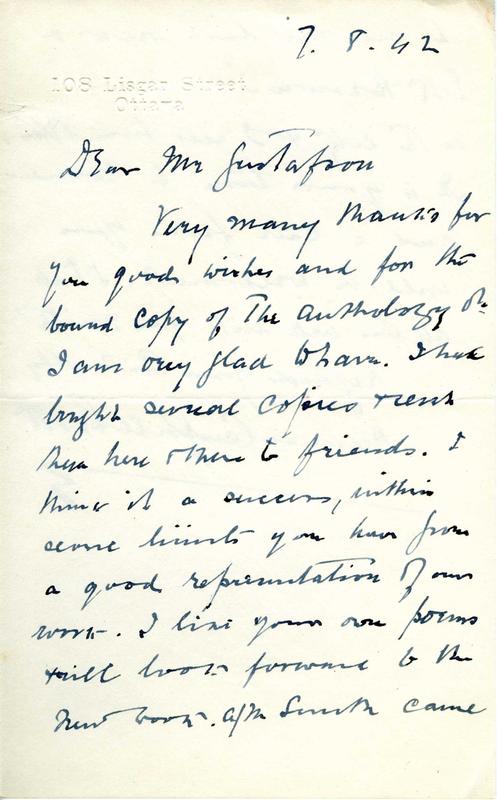 7.8.42
108 Lisgar Street
Ottawa
Dear Mr Gustafson
Very many thanks for
you good wishes and for the
bound copy of The Anthology wh.
I am very glad to have. I have
bought several copies & sent
them here & there to friends. I
think it a success, within
severe limits you have given
a good representation of our
work. I like your own poems
& will look forward to the
new book. A.J.M. Smith came